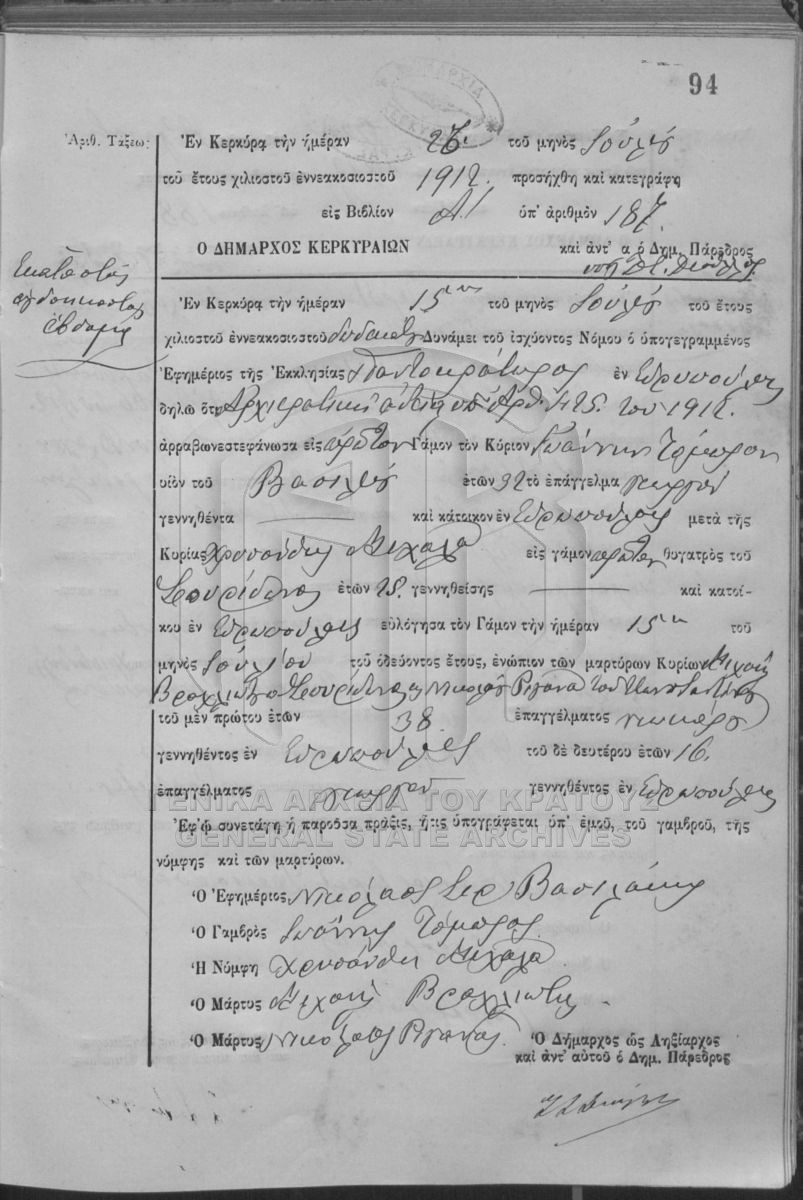 94
Ἀριθ. Τάξεως
Ἐν Κερκύρᾳ τὴν ἡμέραν 27. τοῦ μηνὸς Ἰουλίου
τοῦ ἔτους χιλιοστοῦ ἐννεακοσιοστοῦ 1912. προσήχθη καὶ κατεγράφη
εἰς Βιβλίον Α/ ὑπ' ἀριθμὸν 187.
Ο ΔΗΜΑΡΧΟΣ ΚΕΡΚΥΡΑΙΩΝ καὶ ἀντ' α ὁ Δημ. Πάρεδρος
Ἑκατοστὸς
ὀγδοηκοστὸς
ἕβδομος
Ἐν Κερκύρᾳ τὴν ἡμέραν 15ην τοῦ μηνὸς Ἰουλίου τοῦ ἔτους
χιλιοστοῦ ἐννεακοσιοστοῦ δωδεκάτου Δυνάμει τοῦ ἰσχύοντος Νόμου ὁ ὑπογεγραμμένος
Ἐφημέριος τῆς Ἐκκλησίας Παντοκράτορος ἐν Εὐροπούλοις
δηλῶ ὅτι Ἀρχιερατικῇ ἀδείᾳ ὑπ' Ἀριθ. 425. του 1912.
ἀρραβωνεστεφάνωσα εἰς πρῶτον Γάμον τὸν Κύριον Ἰωάννην Τόμπρον
υἱὸν τοῦ Βασιλείου ἐτῶν 32 τὸ ἐπάγγελμα γεωργοῦ
γεννηθέντα καὶ κάτοικον ἐν Εὐροπούλοις μετὰ τῆς
Κυρίας Χρυσάνθης Μιχαλᾶ εἰς γάμον πρῶτον θυγατρὸς τοῦ
Σπυρίδωνος ἐτῶν 25. γεννηθείσης καὶ κατοί-
κου ἐν Εὐροπούλοις εὐλόγησα τὸν Γάμον τὴν ἡμέραν 15ην τοῦ
μηνὸς Ἰουλίου τοῦ ὁδεύοντος ἔτους, ἐνώπιον τῶν μαρτύρων Κυρίων Μιχαὴλ
Βραχλιώτη Σπυρίδωνος κ Νικολάου Ριγανᾶ του Κωνσταντίνου
τοῦ μὲν πρώτου ἐτῶν 38. ἐπαγγέλματος
γεννηθέντος ἐν Εὐροπούλοις τοῦ δὲ δευτέρου ἐτῶν 16.
ἐπαγγέλματος γεωργοῦ γεννηθέντος ἐν Εὐροπούλοις
ΓΕΝΙΚΑ ΑΡΧΕΙΑ ΤΟΥ ΚΡΑΤΟΥΣ
Ἐφ' ᾧ συνετάγη ἡ παροῦσα πρᾶξις, ἥτις ὑπογράφεται ὑπ' ἐμοῦ, τοῦ γαμβροῦ, τῆς
GENERAL STATE ARCHIVES
νύμφης καὶ τῶν μαρτύρων.
Ὁ Ἐφημέριος Νικόλαος Ιερ. Βασιλάκης
Ὁ Γαμβρὸς Ἰωάννης Τόμπρος
Ἡ Νύμφη Χρυσάνθη Μιχαλᾶ
Ὁ Μάρτυς Μιχαὴλ Βραχλιώτης
Ὁ Μάρτυς Νικόλαος Ριγανᾶς. Ὁ Δήμαρχος ὡς Ληξίαρχος
καὶ ἀντ' αὐτοῦ ὁ Δημ. Πάρεδρος